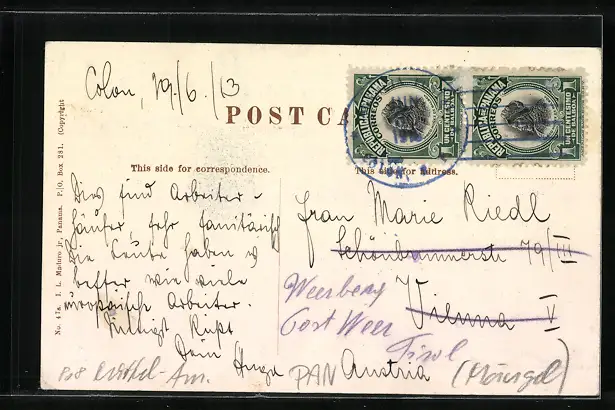 Colon, 19./6./13
POST CA
REPUBLICA DE PANAMA
CORREOS
UN CENTESIMO
REPUBLICA DE PANAMA
CORREOS
UN CENTESIMO
This side for correspondence.
This side for address.
No. 47a. I. L. Maduro jr., Panama. P. O. Box 281. (Copyright
Dies sind Arbeiter-
häuser, sehr sanitärisch
die Leute haben es
besser wie viele
europäische Arbeiter.
Innigst küßt
Dein Hugo
Frau Marie Riedl
Schönbrunnerstr 79/III
Vienna V
Weerberg
Post Weer
Tirol
Austria
PAN